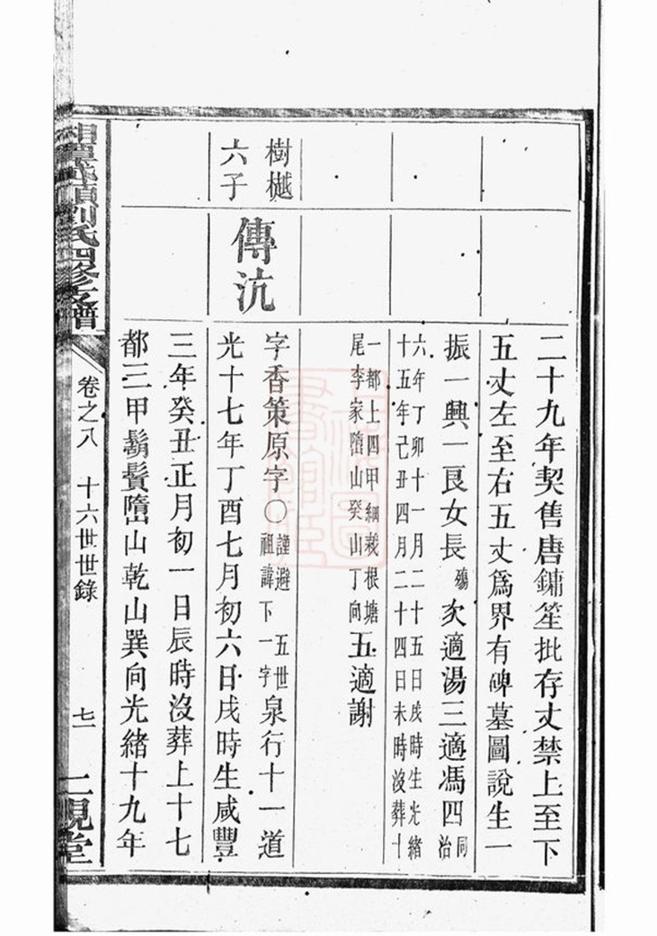 二十九年契售唐鏞笙批存丈禁上至下
五丈左至右五丈爲界有碑墓圖說生一
振一興一艮女長殤次適湯三適馮四同治
六年丁卯十一月二十五日戌時生光緒
十五年己丑四月二十四日未時沒葬十
一都上四甲綱裁根塘
尾李家墮山癸山丁向五適謝
樹樾
六子
傳沆
字香策原字〇謹避五世祖諱下一字泉行十一道
光十七年丁酉七月初六日戌時生咸豐
三年癸丑正月初一日辰時沒葬上十七
都三甲鬍鬢墮山乾山巽向光緒十九年
劉氏四修支譜
卷之八 十六世世錄
七一